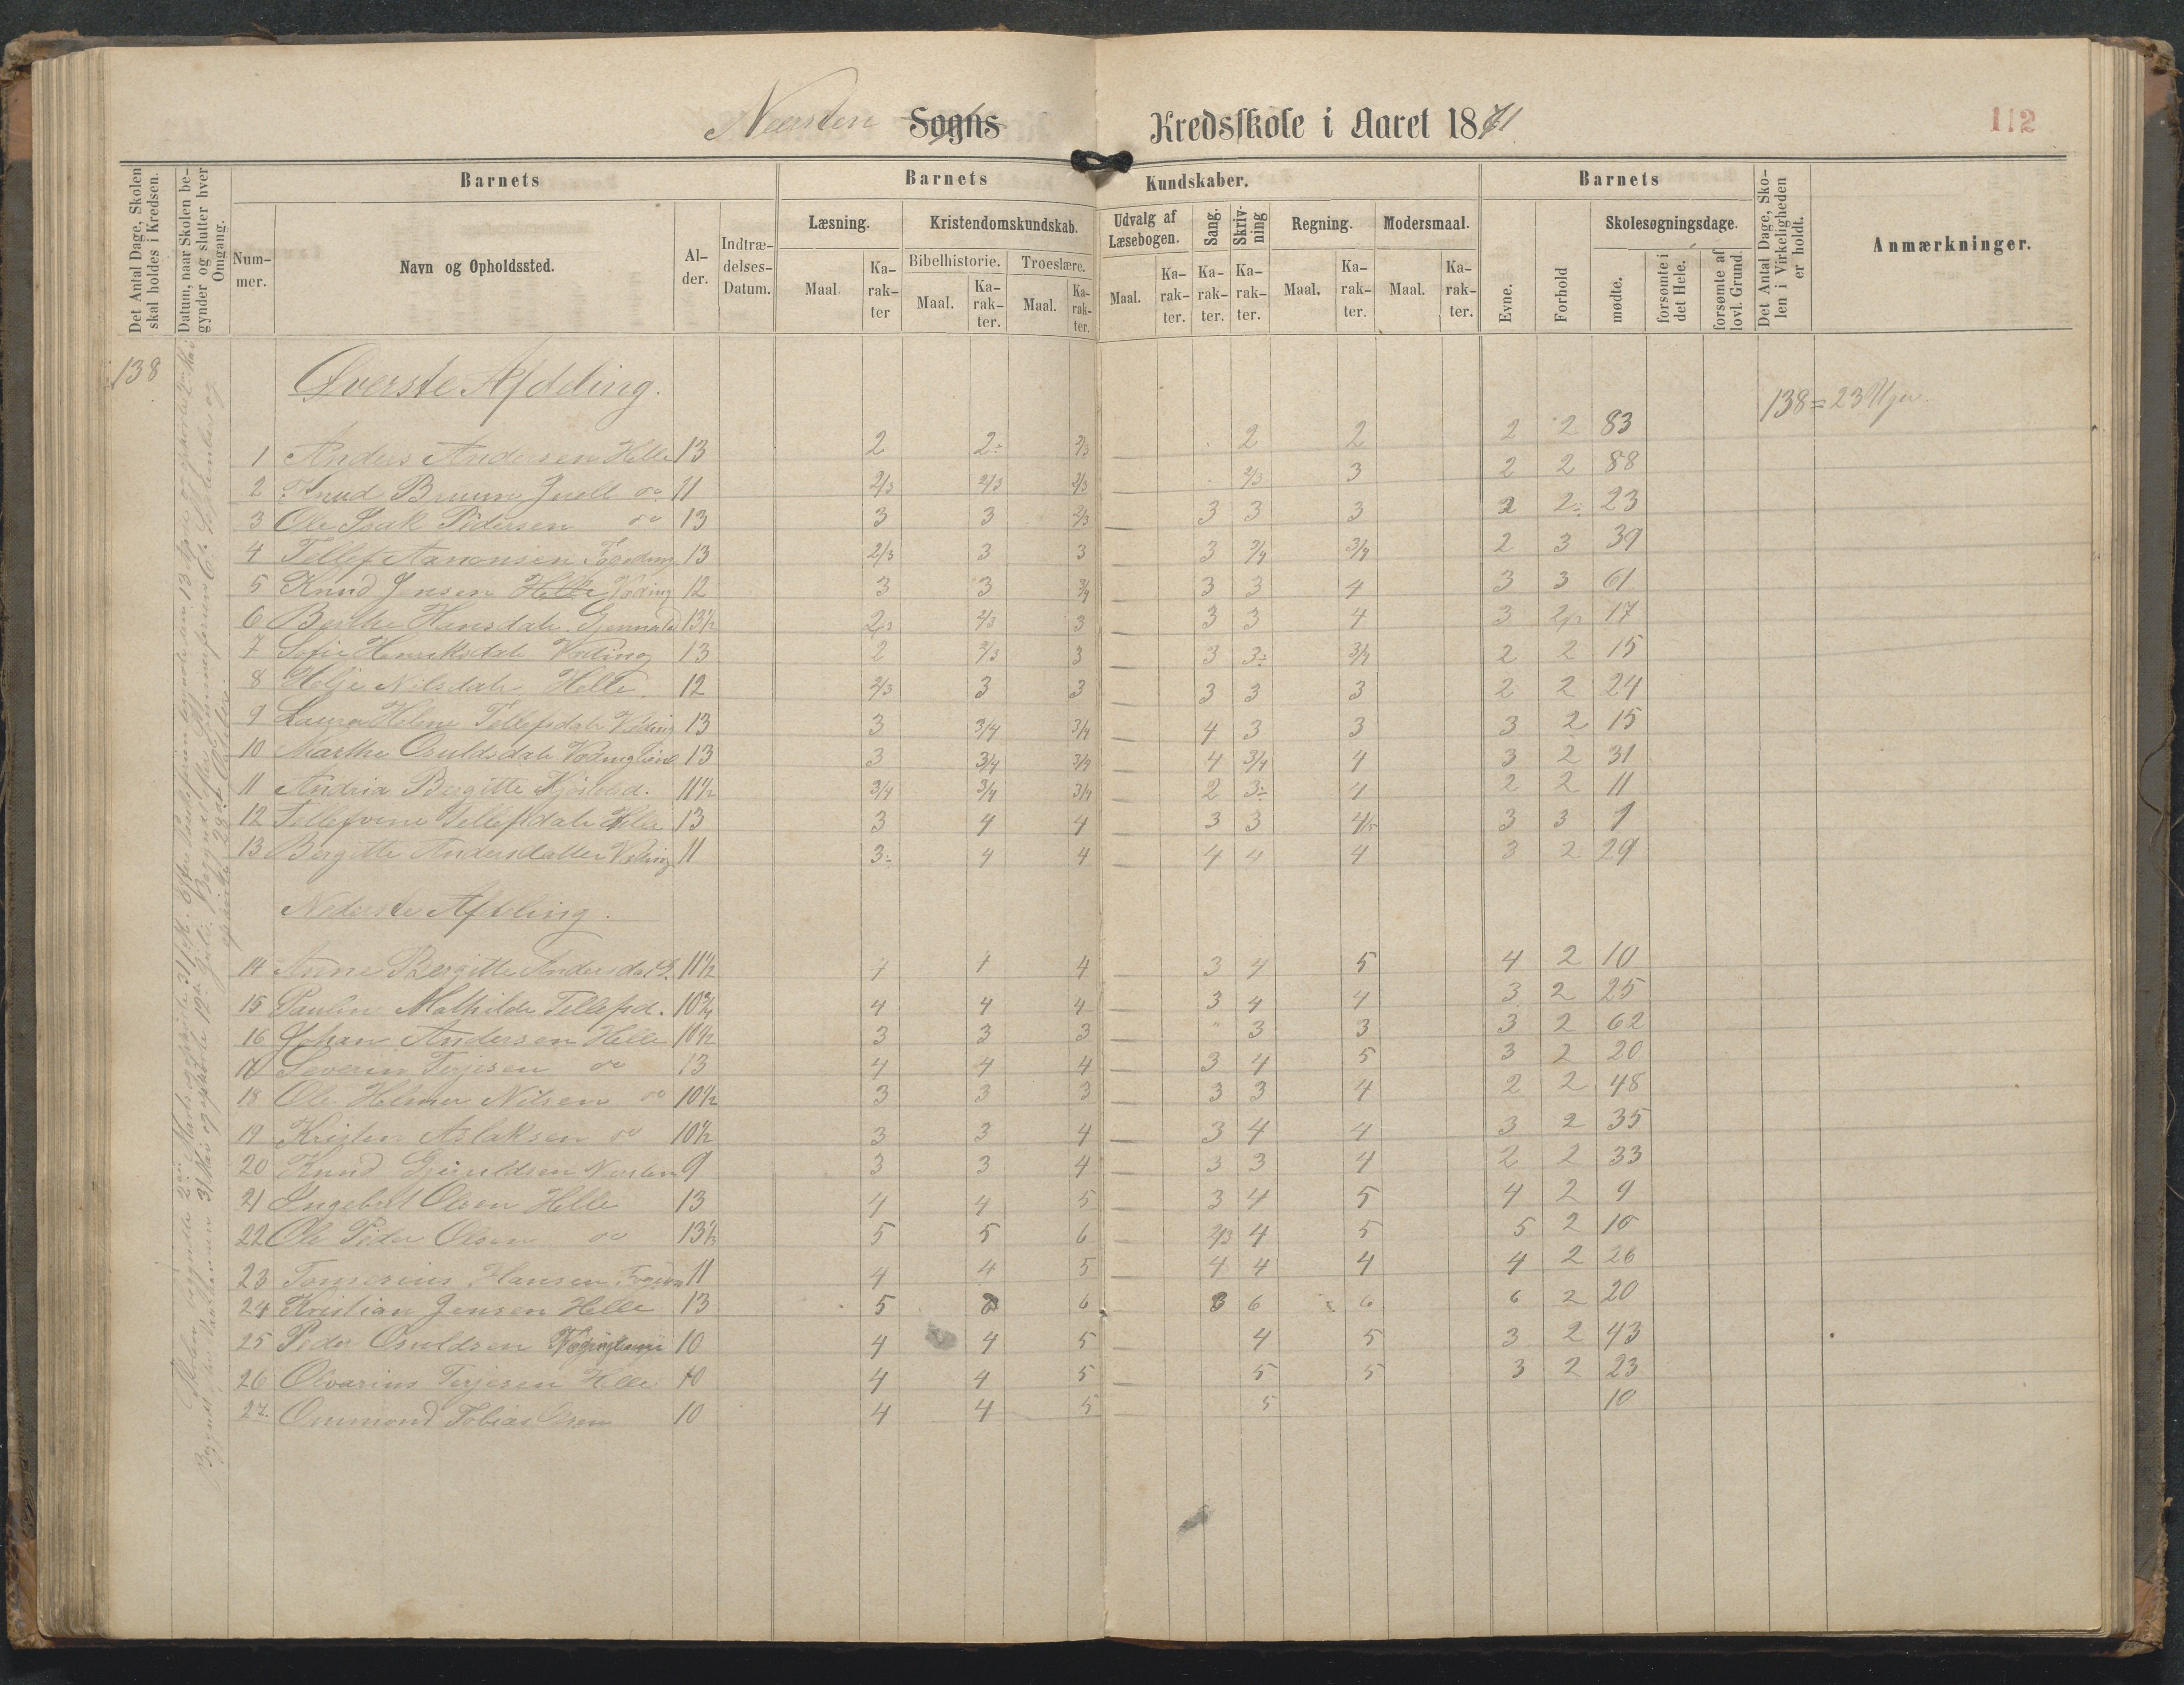 Næersten Sogns Kredsskole i Aaret 1871
112
Det Antal Dage, Skolen skal holdes i Kredsen.
Datum, naar Skolen begynder og slutter hver Omgang.
Barnets
Nummer.
Navn og Opholdssted.
Alder.
Indtrædelses-Datum.
Barnets Kundskaber.
Læsning.
Maal.
Karakter
Kristendomskundskab.
Bibelhistorie.
Maal.
Karakter.
Troeslære.
Maal.
Karakter.
Udvalg af Læsebogen.
Maal.
Karakter.
Sang.
Karakter.
Skrivning
Karakter.
Regning.
Maal.
Karakter.
Modersmaal.
Maal.
Karakter.
Barnets
Evne.
Forhold
Skolesøgningsdage.
mødte.
forsømte i det Hele.
forsømte af lovl. Grund.
Det Antal Dage, Skolen i Virkeligheden er holdt.
Anmærkninger.
138
Øverste Afdeling.
138 = 23 Uger.
1 Anders Andersen Helle 13 2 2÷ 2/3 2 2 2 2 83
2 Knud Bruun Juell do 11 2/3 2/3 2/3 2/3 3 2 2 88
3 Ole Isak Pedersen do 13 3 3 2/3 3 3 3 2 2÷ 23
4 Tellef Aanonsen 13 2/3 3 3 3 3/4 3/4 2 3 39
5 Knud Jensen Helle Væding 12 3 3 3/4 3 3 4 3 3 61
6 Berthe Hansdatr 13½ 2/3 2/3 3 3 3 4 3 17
7 Sofie Henriksdatr Væding 13 2 2/3 3 3 3÷ 3/4 2 2 15
8 Helje Nilsdatr Helle. 12 2/3 3 3 3 3 3 2 2 24
9 Laura Helene Tellefsdatr Væding 13 3 3/4 3/4 4 3 3 3 2 15
10 Marthe Osuldsdatr 13 3 3/4 3/4 4 3/4 4 3 2 31
11 Andrea Bergitte 11½ 3/4 3/4 3/4 2 3÷ 4 2 2 11
12 Tellefsdatr Helle 13 3 4 4 3 3 4/5 3 3 1
13 Bergitte Andersdatter Væding 11 3÷ 4 4 4 4 4 3 2 29
Nederste Afdeling.
14 Anne Bergitte Andersdatr 11½ 4 4 4 3 4 5 4 2 10
15 Pauline Mathilde Tellefsd. 10¾ 4 4 4 3 4 4 3 2 25
16 Johan Andersen Helle 10½ 3 3 3 " 3 3 3 2 62
17 Severin Terjesen do 13 4 4 4 3 4 5 3 2 20
18 Ole Helmer Nilsen do 10½ 3 3 3 3 3 4 2 2 48
19 Kristen Aslaksen do 10½ 3 3 4 3 4 4 3 2 35
20 Knud 9 3 3 4 3 3 4 2 2 33
21 Ingebret Olsen Helle 13 4 4 5 3 4 5 4 2 9
22 Ole Peder Olsen do 13½ 5 5 6 2/3 4 5 5 2 10
23 Hansen 11 4 4 5 4 4 4 4 2 26
24 Kristian Jensen Helle 13 5 6 6 6 6 2 20
25 Peder Osuldsen 10 4 4 5 4 5 3 2 43
26 Olvarius Terjesen Helle 10 4 4 5 5 5 3 2 23
27 Ommond Tobias Olsen 10 4 4 5 5 10